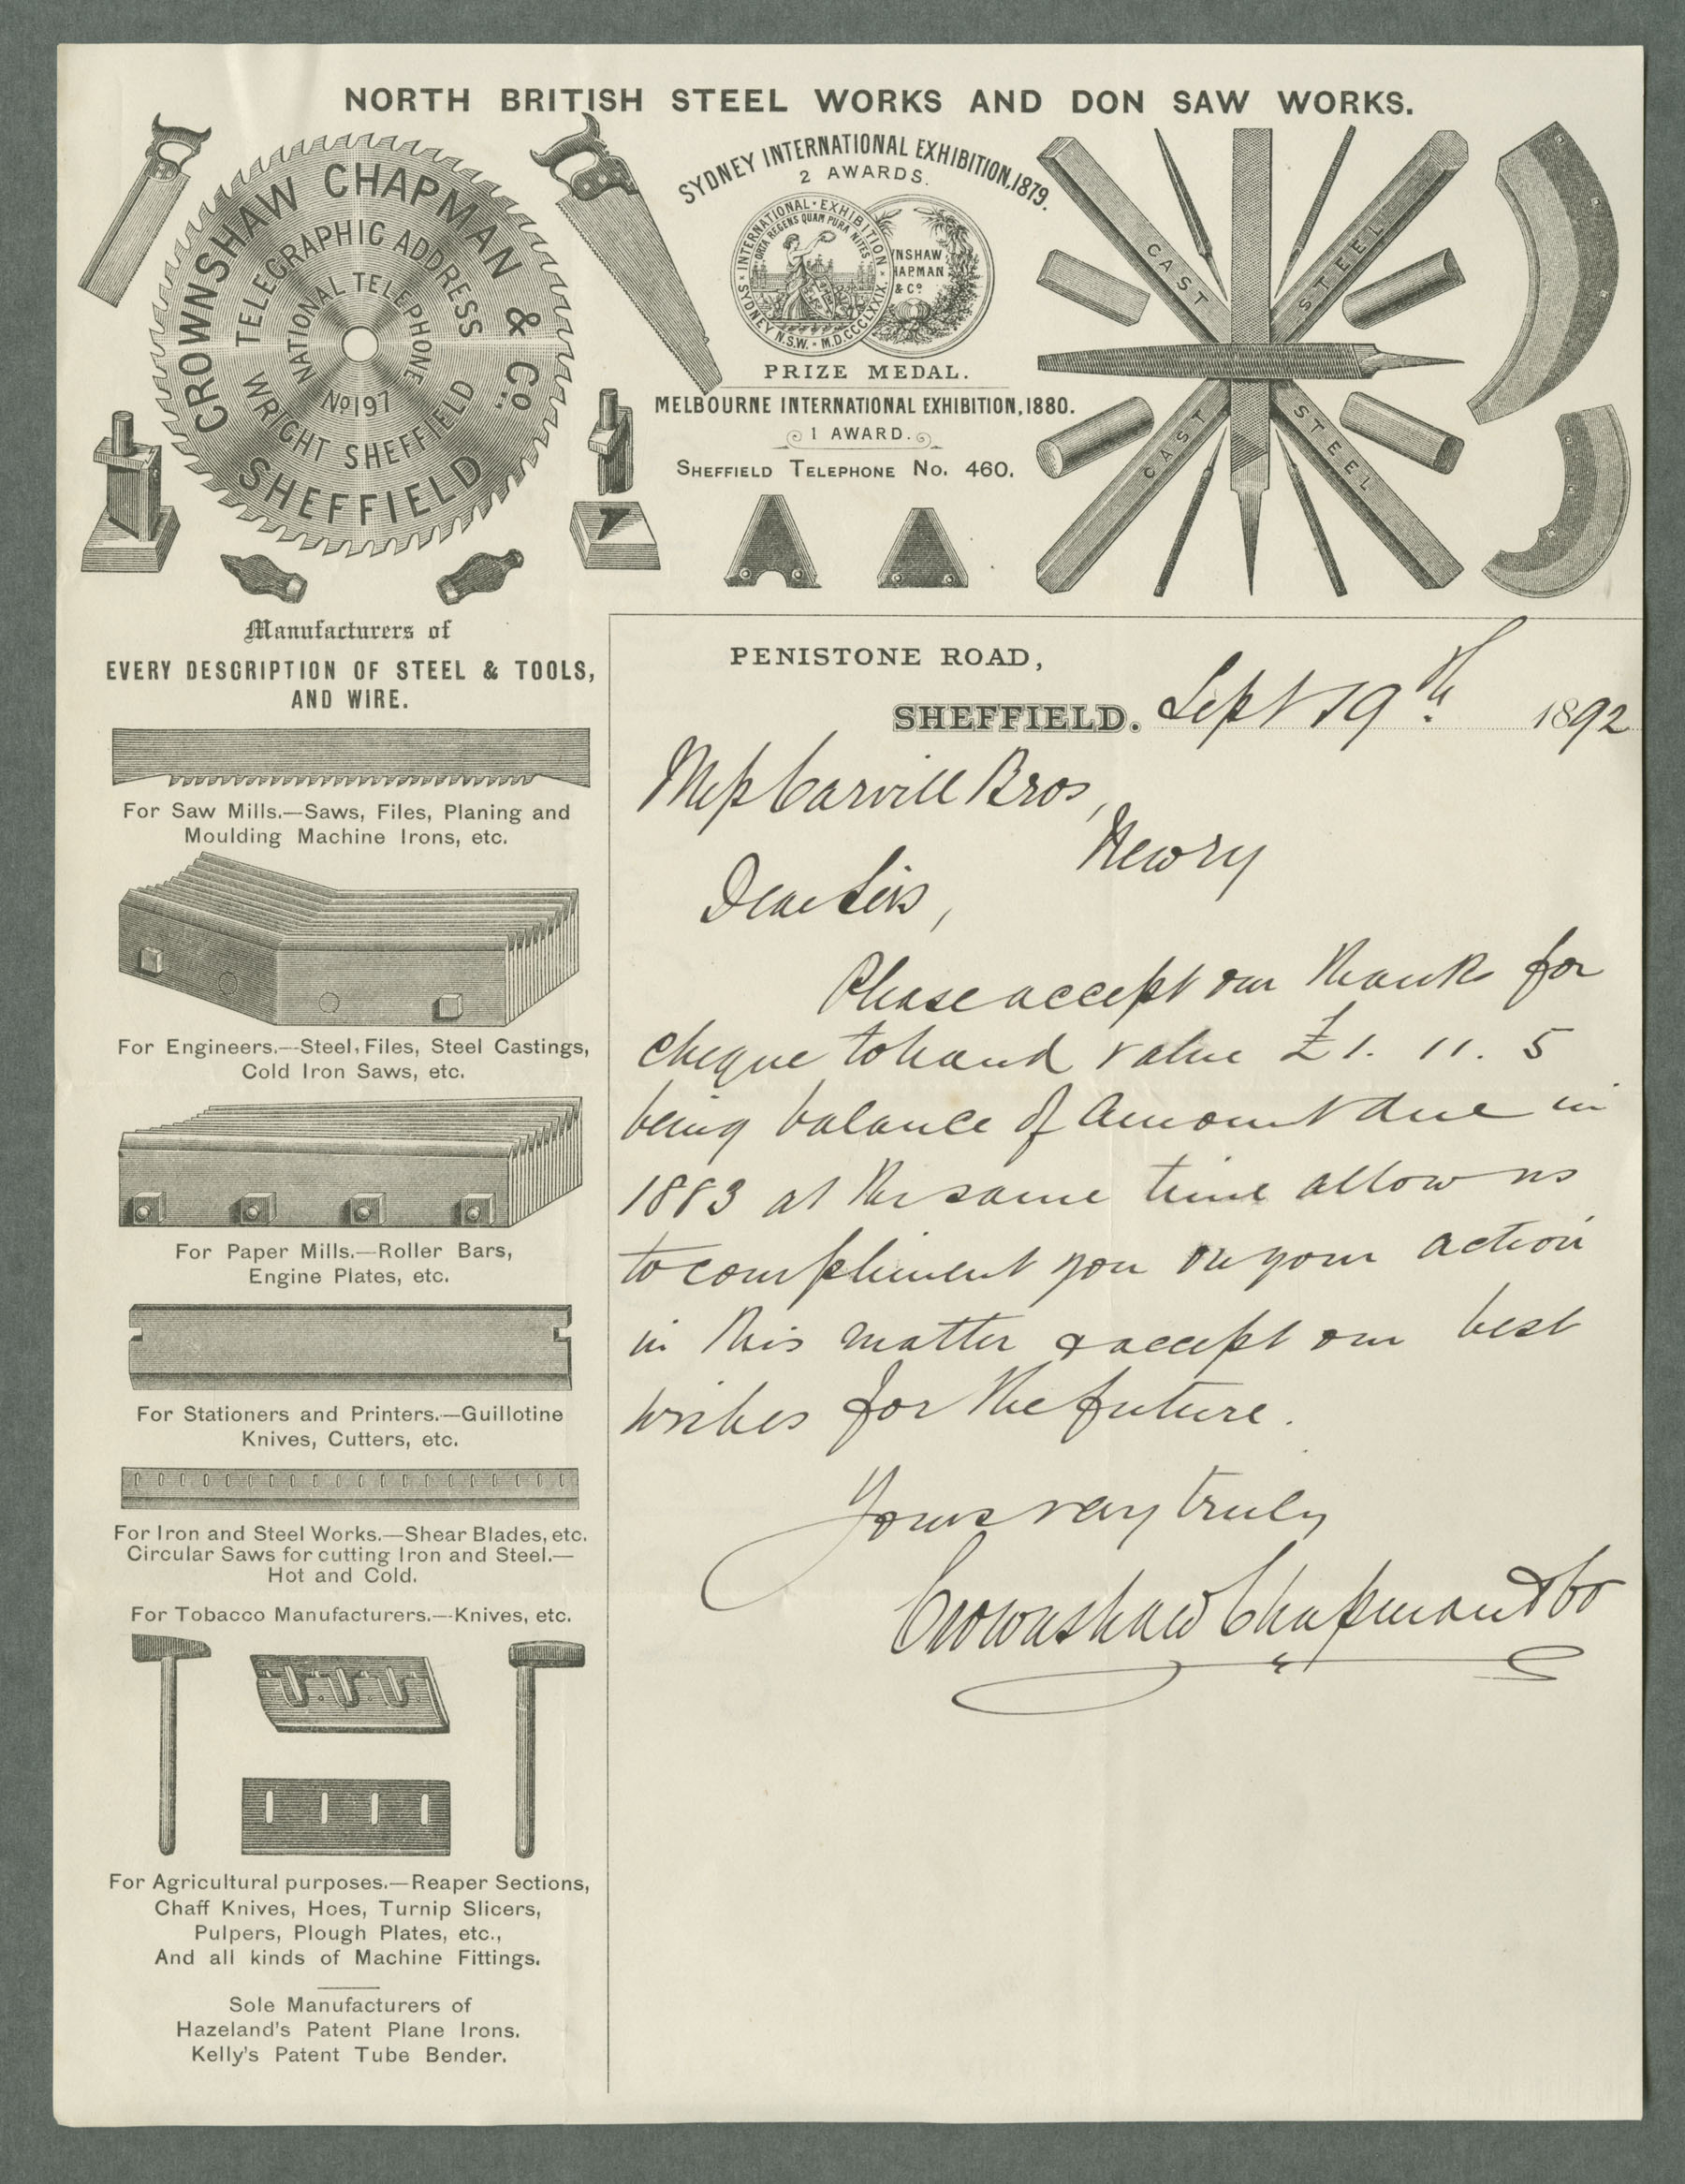 NORTH BRITISH STEEL WORKS AND DON SAW WORKS.
CROWNSHAW CHAPMAN & Co.,
TELEGRAPHIC ADDRESS
NATIONAL TELEPHONE
No 197
WRIGHT SHEFFIELD
SHEFFIELD
SYDNEY INTERNATIONAL EXHIBITION, 1879.
2 AWARDS.
INTERNATIONAL · EXHIBITION
SYDNEY N.S.W. · M.D.CCCLXXIX.
NSHAW
HAPMAN
& Co
PRIZE MEDAL.
MELBOURNE INTERNATIONAL EXHIBITION, 1880.
1 AWARD.
SHEFFIELD TELEPHONE No. 460.
CAST STEEL
CAST STEEL
Manufacturers of
EVERY DESCRIPTION OF STEEL & TOOLS,
AND WIRE.
For Saw Mills.—Saws, Files, Planing and
Moulding Machine Irons, etc.
For Engineers.—Steel, Files, Steel Castings,
Cold Iron Saws, etc.
For Paper Mills.—Roller Bars,
Engine Plates, etc.
For Stationers and Printers.—Guillotine
Knives, Cutters, etc.
For Iron and Steel Works.—Shear Blades, etc.
Circular Saws for cutting Iron and Steel.—
Hot and Cold.
For Tobacco Manufacturers.—Knives, etc.
For Agricultural purposes.—Reaper Sections,
Chaff Knives, Hoes, Turnip Slicers,
Pulpers, Plough Plates, etc.,
And all kinds of Machine Fittings.
Sole Manufacturers of
Hazeland's Patent Plane Irons.
Kelly's Patent Tube Bender.
PENISTONE ROAD,
SHEFFIELD. Sept 19th 1892
Messrs Carvill Bros,
Newry
Dear Sirs,
Please accept our thanks for
cheque to hand value £1. 11. 5
being balance of amount due in
1883 at the same time allow us
to compliment you on your action
in this matter & accept our best
wishes for the future.
Yours very truly
Crownshaw Chapman & Co